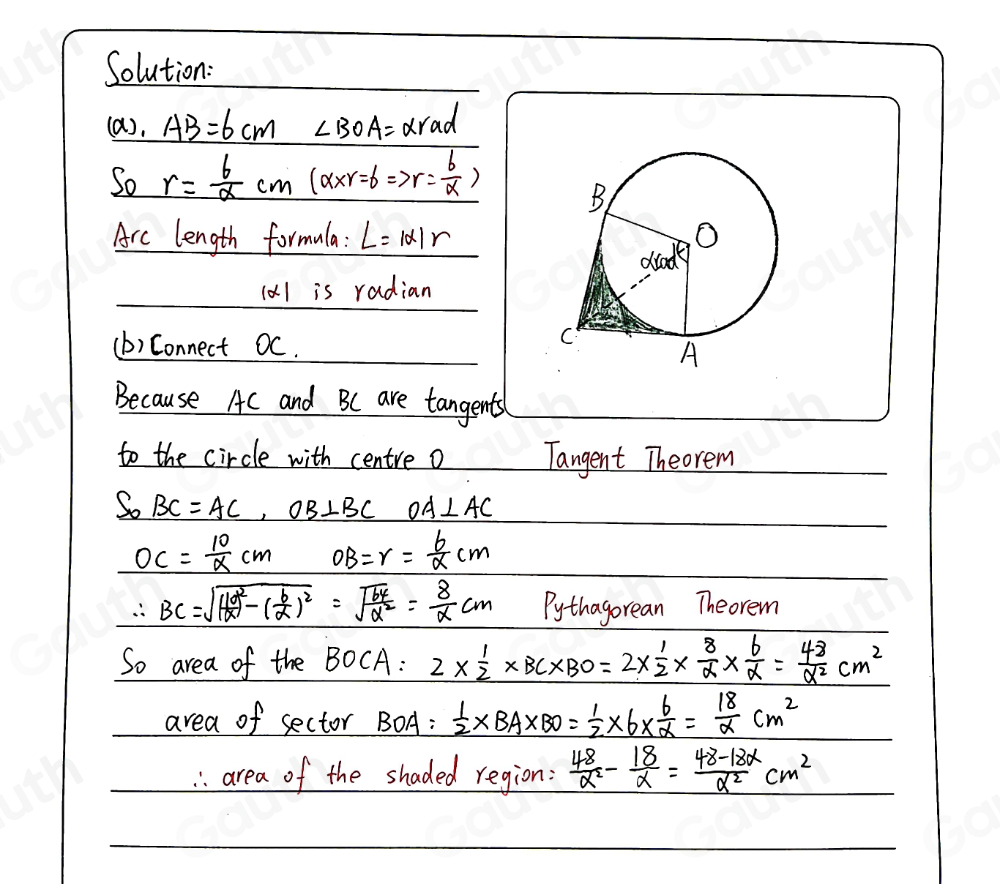 Solution:
(a). AB=6cm ∠BOA=αrad
So r=6/α cm (α×r=6=>r=6/α)
Arc length formula: L=|α|r
|α| is radian
(b) Connect OC.
Because AC and BC are tangents
to the circle with centre O Tangent Theorem
So BC=AC, OB⊥BC OA⊥AC
OC=10/α cm OB=r=6/α cm
∴ BC=√((10/α)²-(6/α)²) = √(64/α²) = 8/α cm Pythagorean Theorem
So area of the BOCA: 2×1/2×BC×BO=2×1/2×8/α×6/α=48/α² cm²
area of sector BOA: 1/2×BA×BO=1/2×6×6/α=18/α cm²
∴ area of the shaded region: 48/α²-18/α=48-18α/α² cm²
B
O
αrad
C
A
Gauth